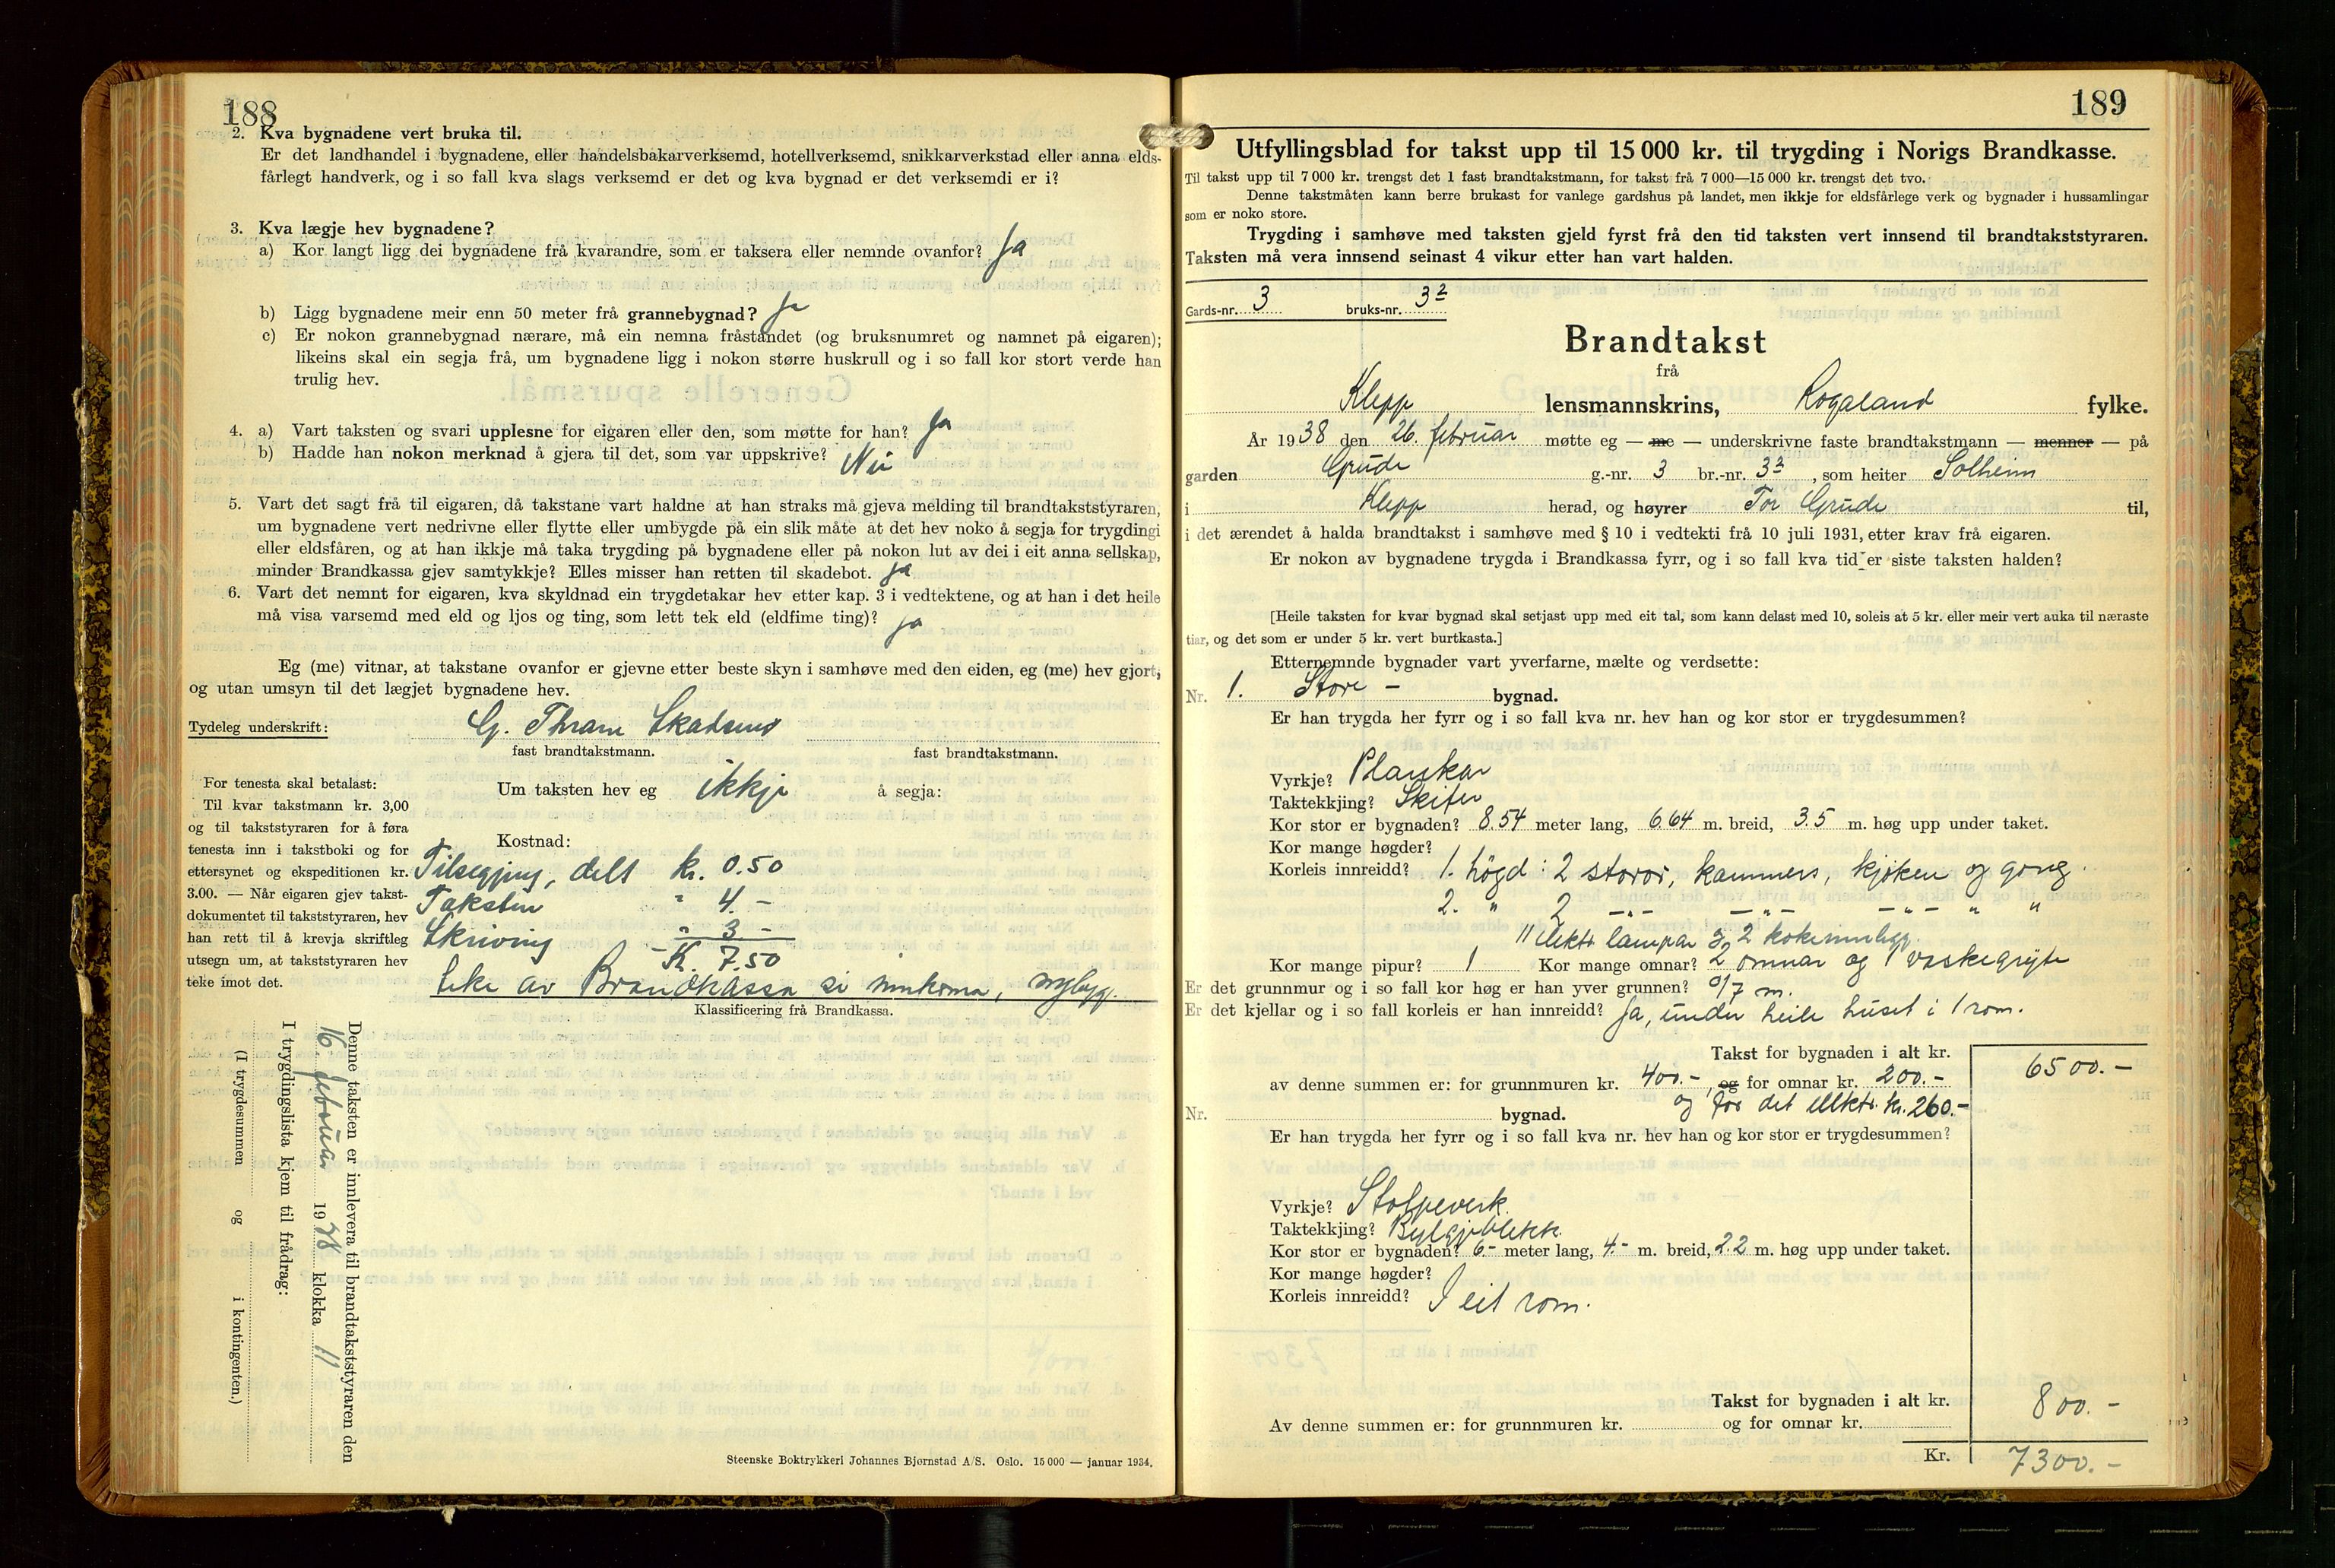 188
2. Kva bygnadene vert bruka til.
Er det landhandel i bygnadene, eller handelsbakarverksemd, hotellverksemd, snikkarverkstad eller anna elds-
fårlegt handverk, og i so fall kva slags verksemd er det og kva bygnad er det verksemdi er i?
3. Kva lægje hev bygnadene?
a) Kor langt ligg dei bygnadene frå kvarandre, som er taksera eller nemnde ovanfor? Ja
b) Ligg bygnadene meir enn 50 meter frå grannebygnad? Ja
c) Er nokon grannebygnad nærare, må ein nemna fråstandet (og bruksnumret og namnet på eigaren);
likeins skal ein segja frå, um bygnadene ligg i nokon større huskrull og i so fall kor stort verde han
trulig hev.
4. a) Vart taksten og svari upplesne for eigaren eller den, som møtte for han? Ja
b) Hadde han nokon merknad å gjera til det, som var uppskrive? Nei
5. Vart det sagt frå til eigaren, då takstane vart haldne at han straks må gjeva melding til brandtakststyraren,
um bygnadene vert nedrivne eller flytte eller umbygde på ein slik måte at det hev noko å segja for trygdingi
eller eldsfåren, og at han ikkje må taka trygding på bygnadene eller på nokon lut av dei i eit anna sellskap,
minder Brandkassa gjev samtykkje? Elles misser han retten til skadebot. Ja
6. Vart det nemnt for eigaren, kva skyldnad ein trygdetakar hev etter kap. 3 i vedtektene, og at han i det heile
må visa varsemd med eld og ljos og ting, som lett tek eld (eldfime ting)? Ja
Eg (me) vitnar, at takstane ovanfor er gjevne etter beste skyn i samhøve med den eiden, eg (me) hev gjort,
og utan umsyn til det lægjet bygnadene hev.
Tydeleg underskrift: G. Thram
fast brandtakstmann. fast brandtakstmann.
For tenesta skal betalast:
Til kvar takstmann kr. 3,00
og til takststyraren for å føra
tenesta inn i takstboki og for
ettersynet og ekspeditionen kr.
3.00. — Når eigaren gjev takst-
dokumentet til takststyraren, hev
han rett til å krevja skriftleg
utsegn um, at takststyraren hev
teke imot det.
Um taksten hev eg ikkje å segja:
Kostnad:
Tilsegjing, delt kr. 0.50
Taksten " 4.-
Skriving " 3-
Kr. 7.50
av Brandkassa
Klassificering frå Brandkassa.
Denne taksten er innlevera til brandtakststyraren den
16. februar 1938 klokka 11
I trygdingslista kjem til frådrag:
(I trygdesummen og i kontingenten.)
Steenske Boktrykkeri Johannes Bjørnstad A/S. Oslo. 15 000 — januar 1934.
189
Utfyllingsblad for takst upp til 15 000 kr. til trygding i Norigs Brandkasse.
Til takst upp til 7 000 kr. trengst det 1 fast brandtakstmann, for takst frå 7 000—15 000 kr. trengst det tvo.
Denne takstmåten kann berre brukast for vanlege gardshus på landet, men ikkje for eldsfårlege verk og bygnader i hussamlingar
som er noko store.
Trygding i samhøve med taksten gjeld fyrst frå den tid taksten vert innsend til brandtakststyraren.
Taksten må vera innsend seinast 4 vikur etter han vart halden.
Gards-nr. 3 bruks-nr. 32
Brandtakst
frå
Klepp lensmannskrins, Rogaland fylke.
År 1938 den 26. februar møtte eg — me — underskrivne faste brandtakstmann — menner — på
garden Grude g.-nr. 3 br.-nr. 32, som heiter Solheim
i Klepp herad, og høyrer Tor Grude til,
i det ærendet å halda brandtakst i samhøve med § 10 i vedtekti frå 10 juli 1931, etter krav frå eigaren.
Er nokon av bygnadene trygda i Brandkassa fyrr, og i so fall kva tid er siste taksten halden?
[Heile taksten for kvar bygnad skal setjast upp med eit tal, som kann delast med 10, soleis at 5 kr. eller meir vert auka til næraste
tiar, og det som er under 5 kr. vert burtkasta.]
Etternemnde bygnader vart yverfarne, mælte og verdsette:
Nr. 1. Stove - bygnad.
Er han trygda her fyrr og i so fall kva nr. hev han og kor stor er trygdesummen?
Vyrkje? Plankar
Taktekkjing? Skifer
Kor stor er bygnaden? 8.54 meter lang, 6.64 m. breid, 3.5 m. høg upp under taket.
Kor mange høgder?
Korleis innreidd? 1. högd: 2 stovor, kammers, kjøken og gong.
2. " 2 -"- -"- -"- " "
11 elektr. lampar og 2 kokeinnlegg.
Kor mange pipur? 1 Kor mange omnar? 2 omnar og 1 vaskegryte
Er det grunnmur og i so fall kor høg er han yver grunnen? 0/7 m.
Er det kjellar og i so fall korleis er han innreidd? Ja, under heile huset i 1 rom.
Takst for bygnaden i alt kr. 6500.-
av denne summen er: for grunnmuren kr. 400.-, og for omnar kr. 200.-
og for det elektr. kr. 260.-
Nr. bygnad.
Er han trygda her fyrr og i so fall kva nr. hev han og kor stor er trygdesummen?
Vyrkje? Stolpeverk.
Taktekkjing? Bylgjeblekk.
Kor stor er bygnaden? 6.- meter lang, 4.- m. breid, 2.2 m. høg upp under taket.
Kor mange høgder?
Korleis innreidd? I eit rom.
Takst for bygnaden i alt kr. 800.-
Av denne summen er: for grunnmuren kr. og for omnar kr.
Kr. 7300.-